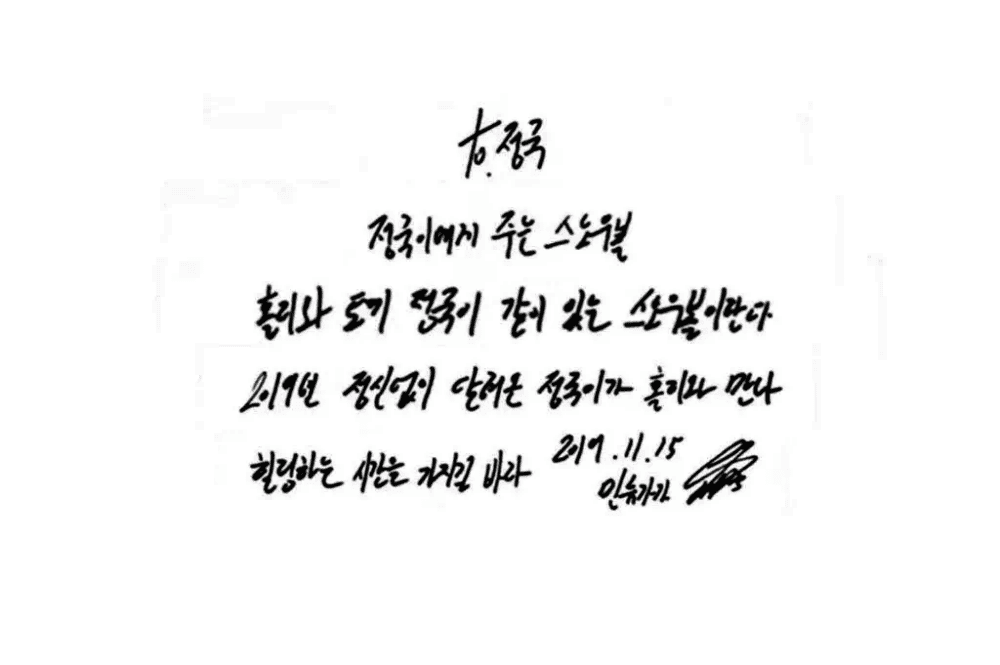 to. 정국
정국이에게 주는 스노우볼
홀리와 토끼 정국이 같이 있는 스노우볼이란다
2019년 정신없이 달려온 정국이가 홀리와 만나
힐링하는 시간을 가지길 바라 2019.11.15
민슈가가